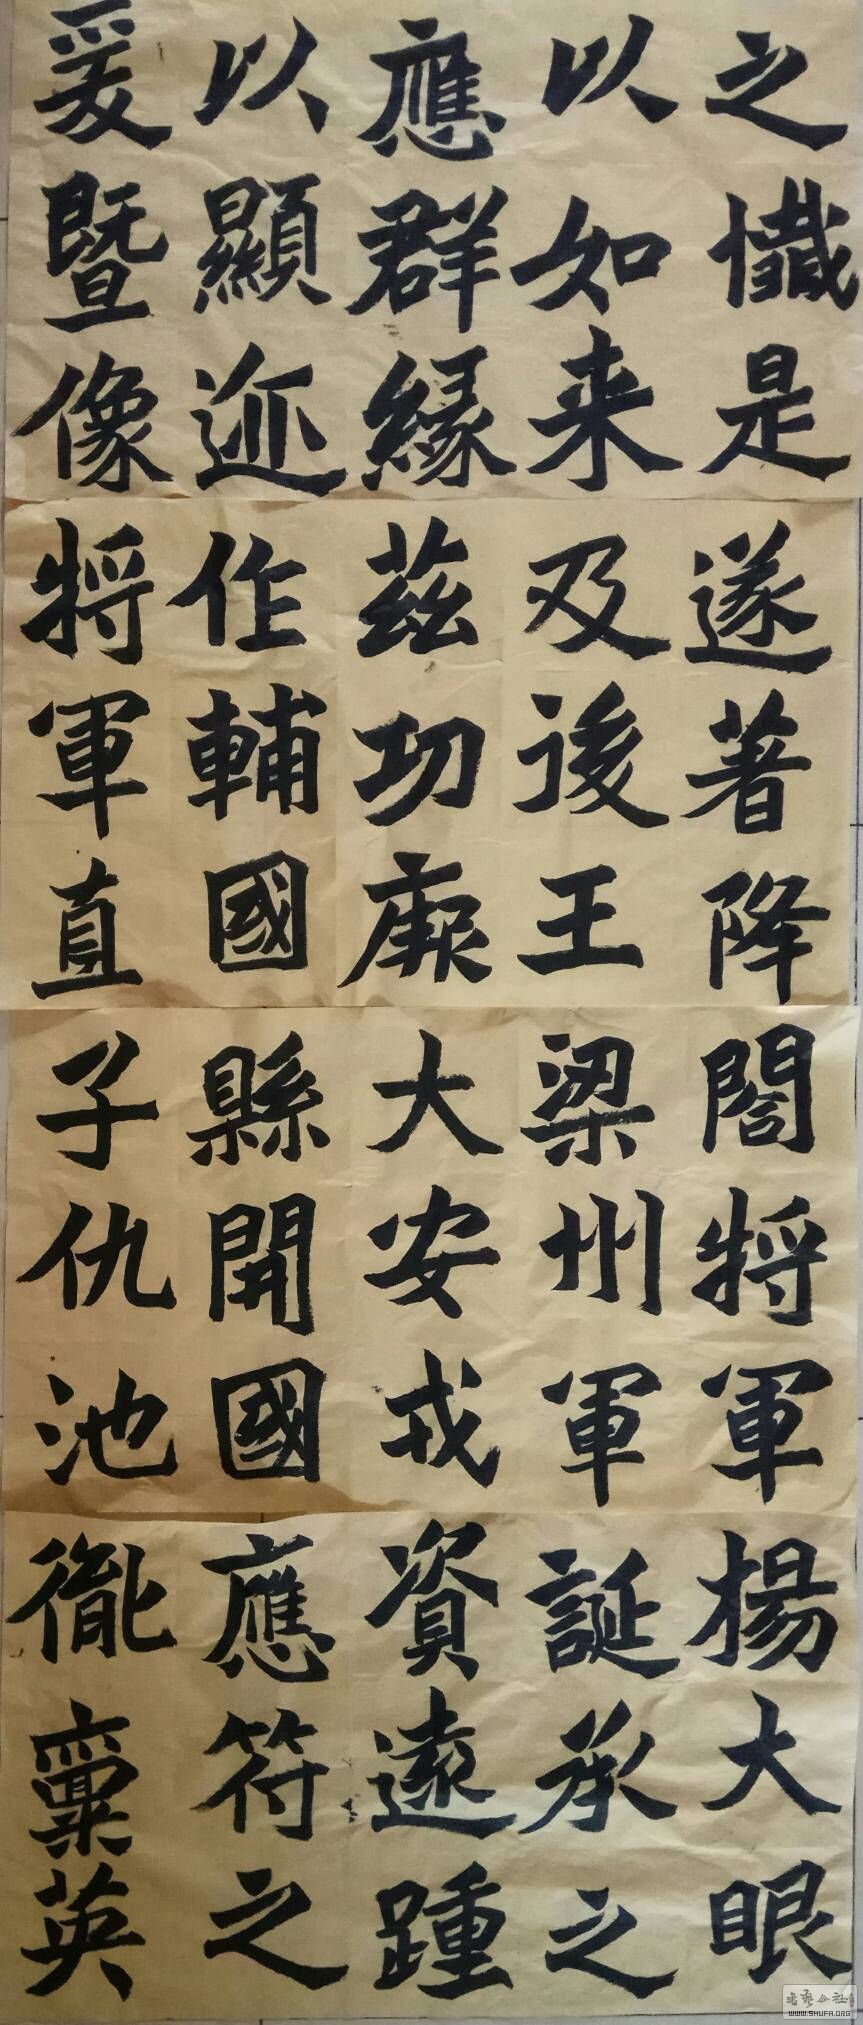 之懺是
以如来
應群緣
以顯迹
爰暨像
遂著降
及後王
茲功厥
作輔國
將軍直
閤將軍
梁州軍
大安戎
縣開國
子仇池
楊大眼
誕承之
資遠踵
應符之
胤稟英
书艺公社
WWW.SHUFA.ORG